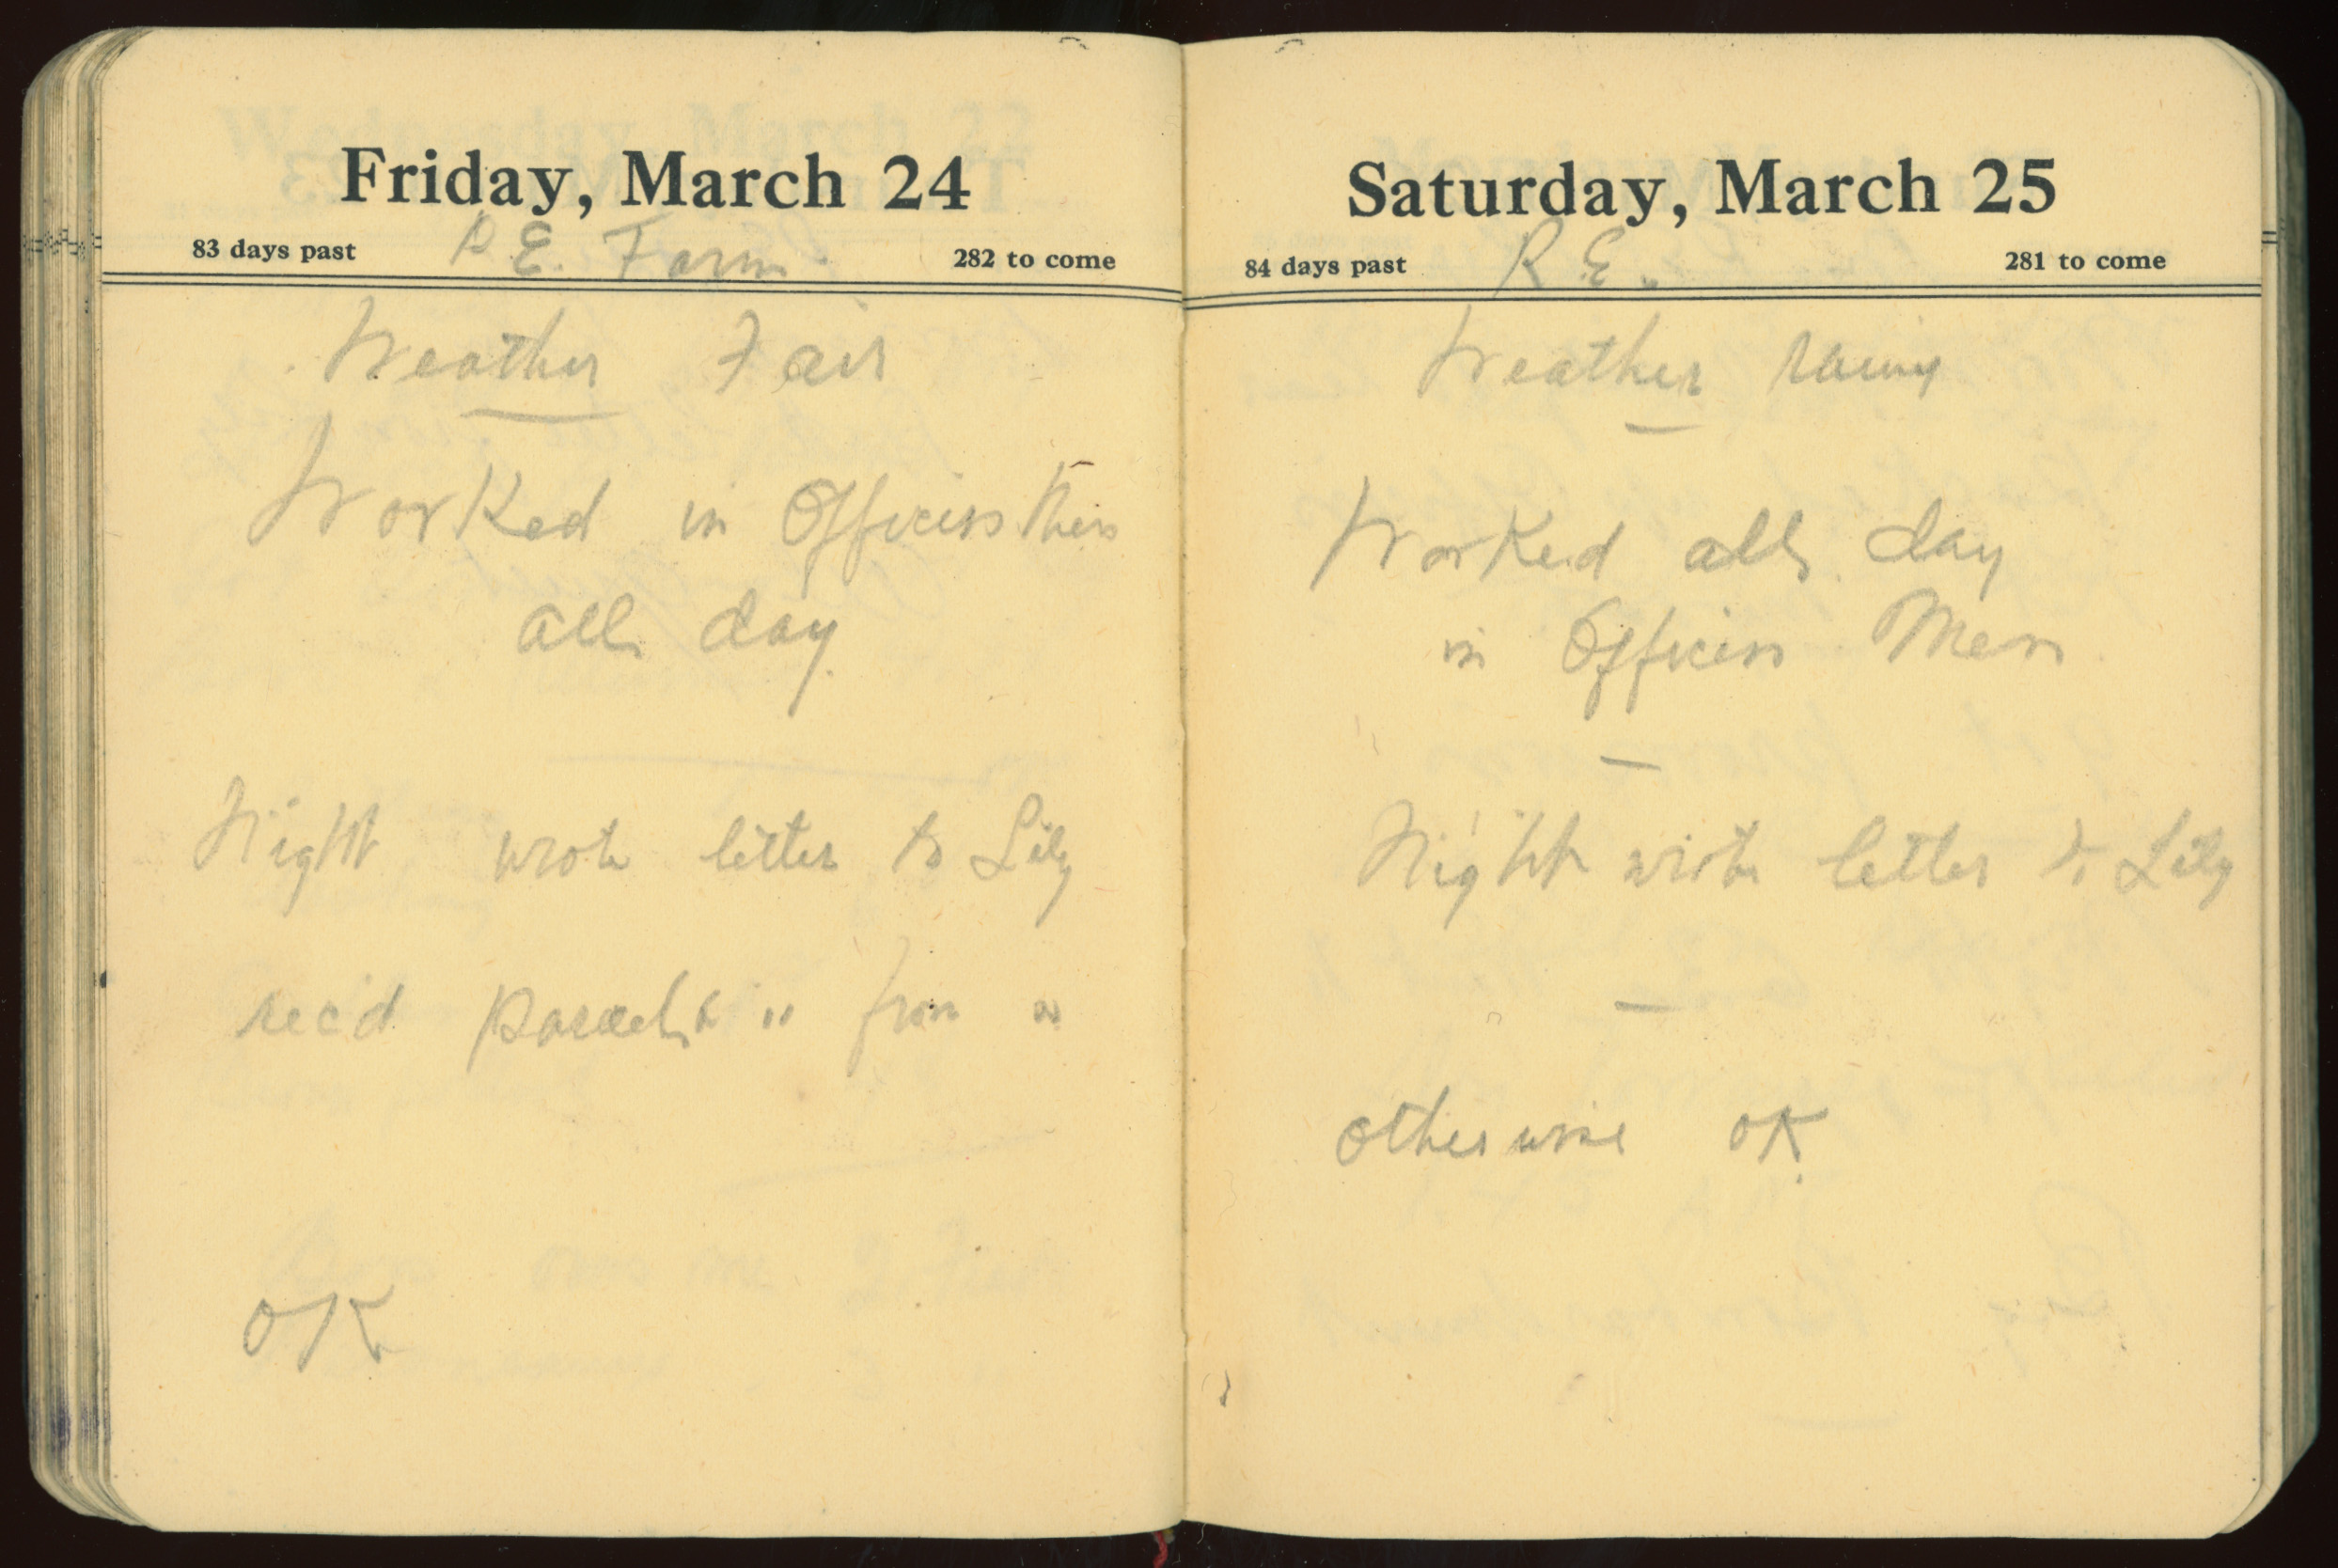 Friday, March 24
83 days past R E. Farm 282 to come
Weather Fair
Worked in Officers Mess
all day.
Night wrote letter to Lily
rec'd Parcel & " from "
OK
Saturday, March 25
84 days past R. E. 281 to come
Weather rainy
Worked all day
in Officers Mess
Night wrote letter to Lily
otherwise OK.